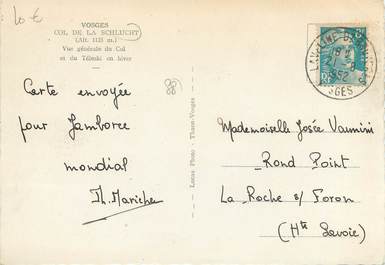 10 €
VOSGES
COL DE LA SCHLUCHT
(Alt. 1135 m.)
Vue générale du Col
et du Téleski en hiver
88
Carte envoyée
pour Jamboree
mondial
Th. Mariche
Lucien Photo - Thaon-Vosges
1952
VOSGES
Mademoiselle Josée Vaumini
Rond Point
La Roche s/ Foron
(Hte Savoie)